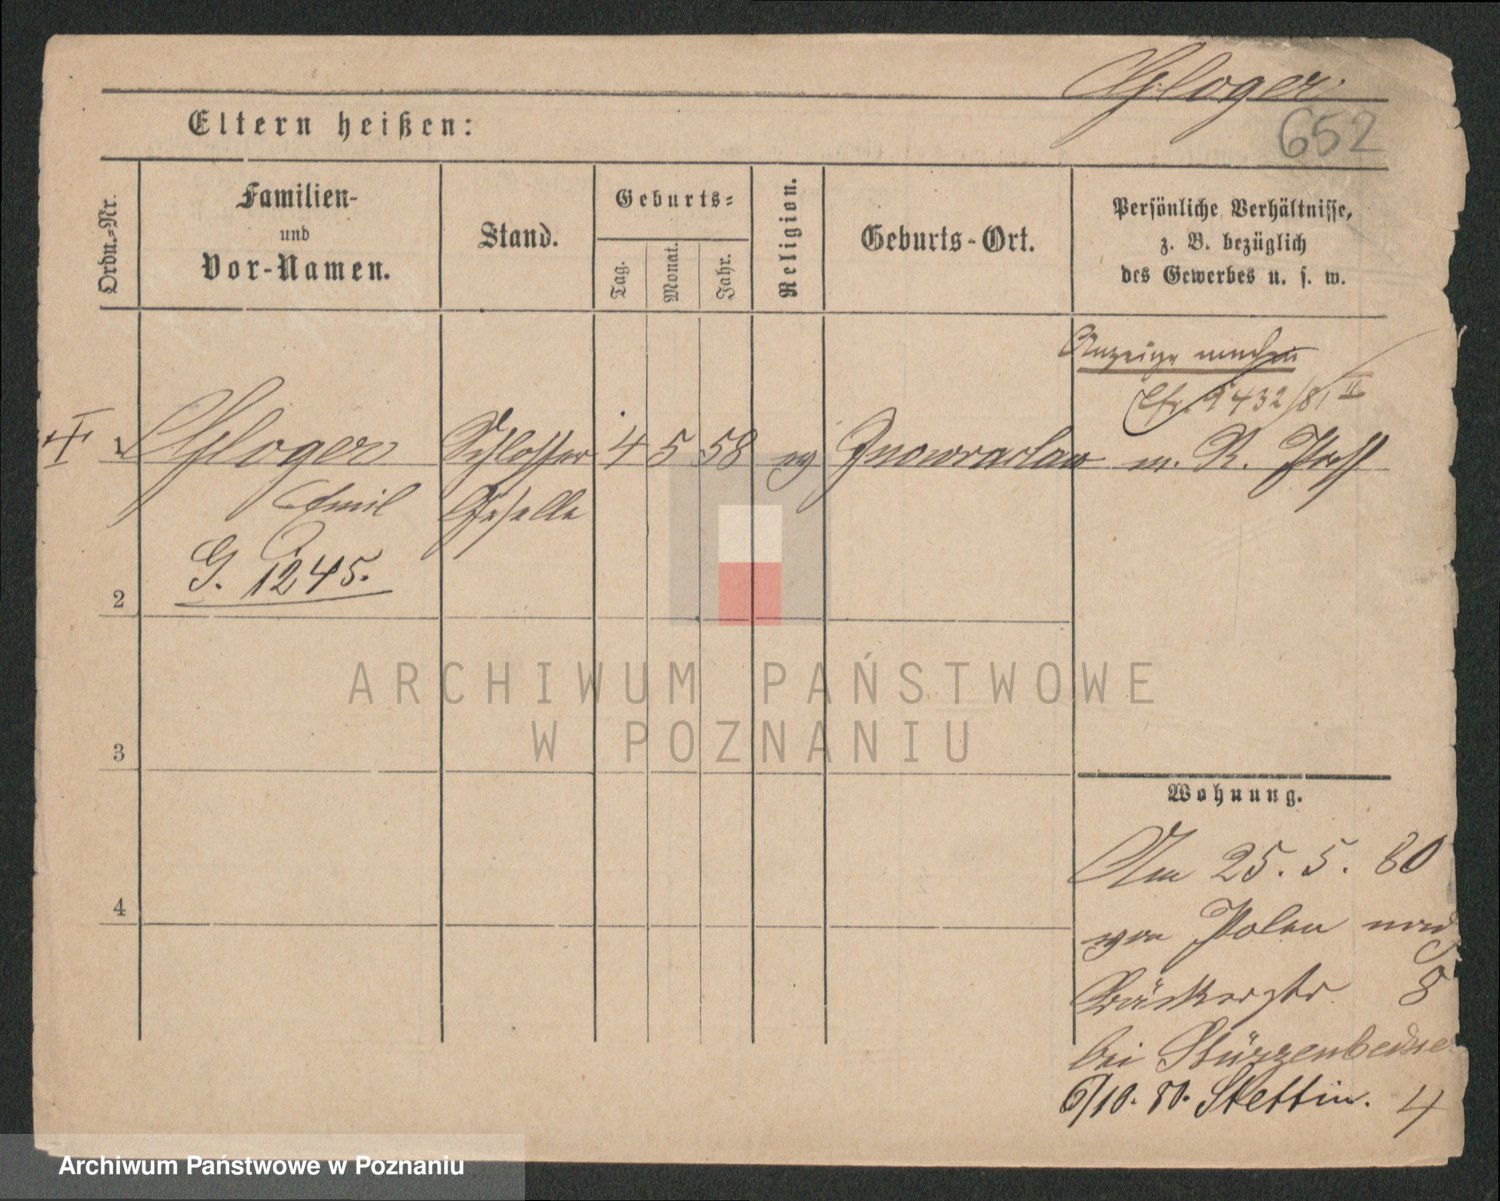 Gloger
652
Eltern heißen:
Ordn.-Nr.
Familien-
und
Vor-Namen.
Stand.
Geburts-
Tag.
Monat.
Jahr.
Religion.
Geburts-Ort.
Persönliche Verhältnisse,
z. B. bezüglich
des Gewerbes u. s. w.
Anzeige machen
432/81 II
1 Gloger Schlosser 4 5 58 ev Inowraclaw m. R. Paß
Emil Geselle
G. 1245.
2
3
4
Wohnung.
Am 25. 5. 80
von Polen nach
Bäckerstr 8
bei
6/10. 80. Stettin. 4
ARCHIWUM PAŃSTWOWE
W POZNANIU
Archiwum Państwowe w Poznaniu